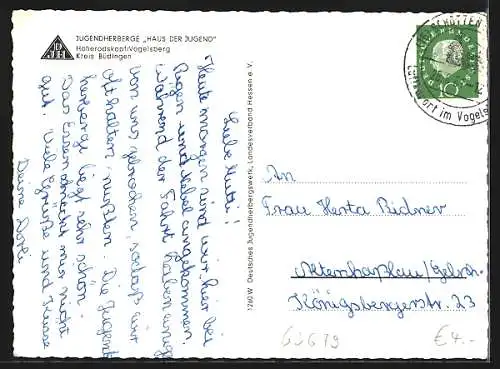 JUGENDHERBERGE „HAUS DER JUGEND“
Hoherodskopf/Vogelsberg
Kreis Büdingen
Liebe Mutti!
Heute morgen sind wir hier bei
Regen und Nebel angekommen.
Während der Fahrt haben einige
von uns gebrochen, sodaß wir
oft halten mußten. Die Jugend-
herberge liegt sehr schön.
Das Essen schmeckt mir nicht
gut. Viele Grüße und Küsse
Deine Dorli
1260 W Deutsches Jugendherbergswerk, Landesverband Hessen e. V.
SCHOTTEN
Luftkurort im Vogels
10
An
Frau Herta Bidner
Altenhaßlau/Gelnh.
Königsbergerstr. 23
60679
€ 4.-